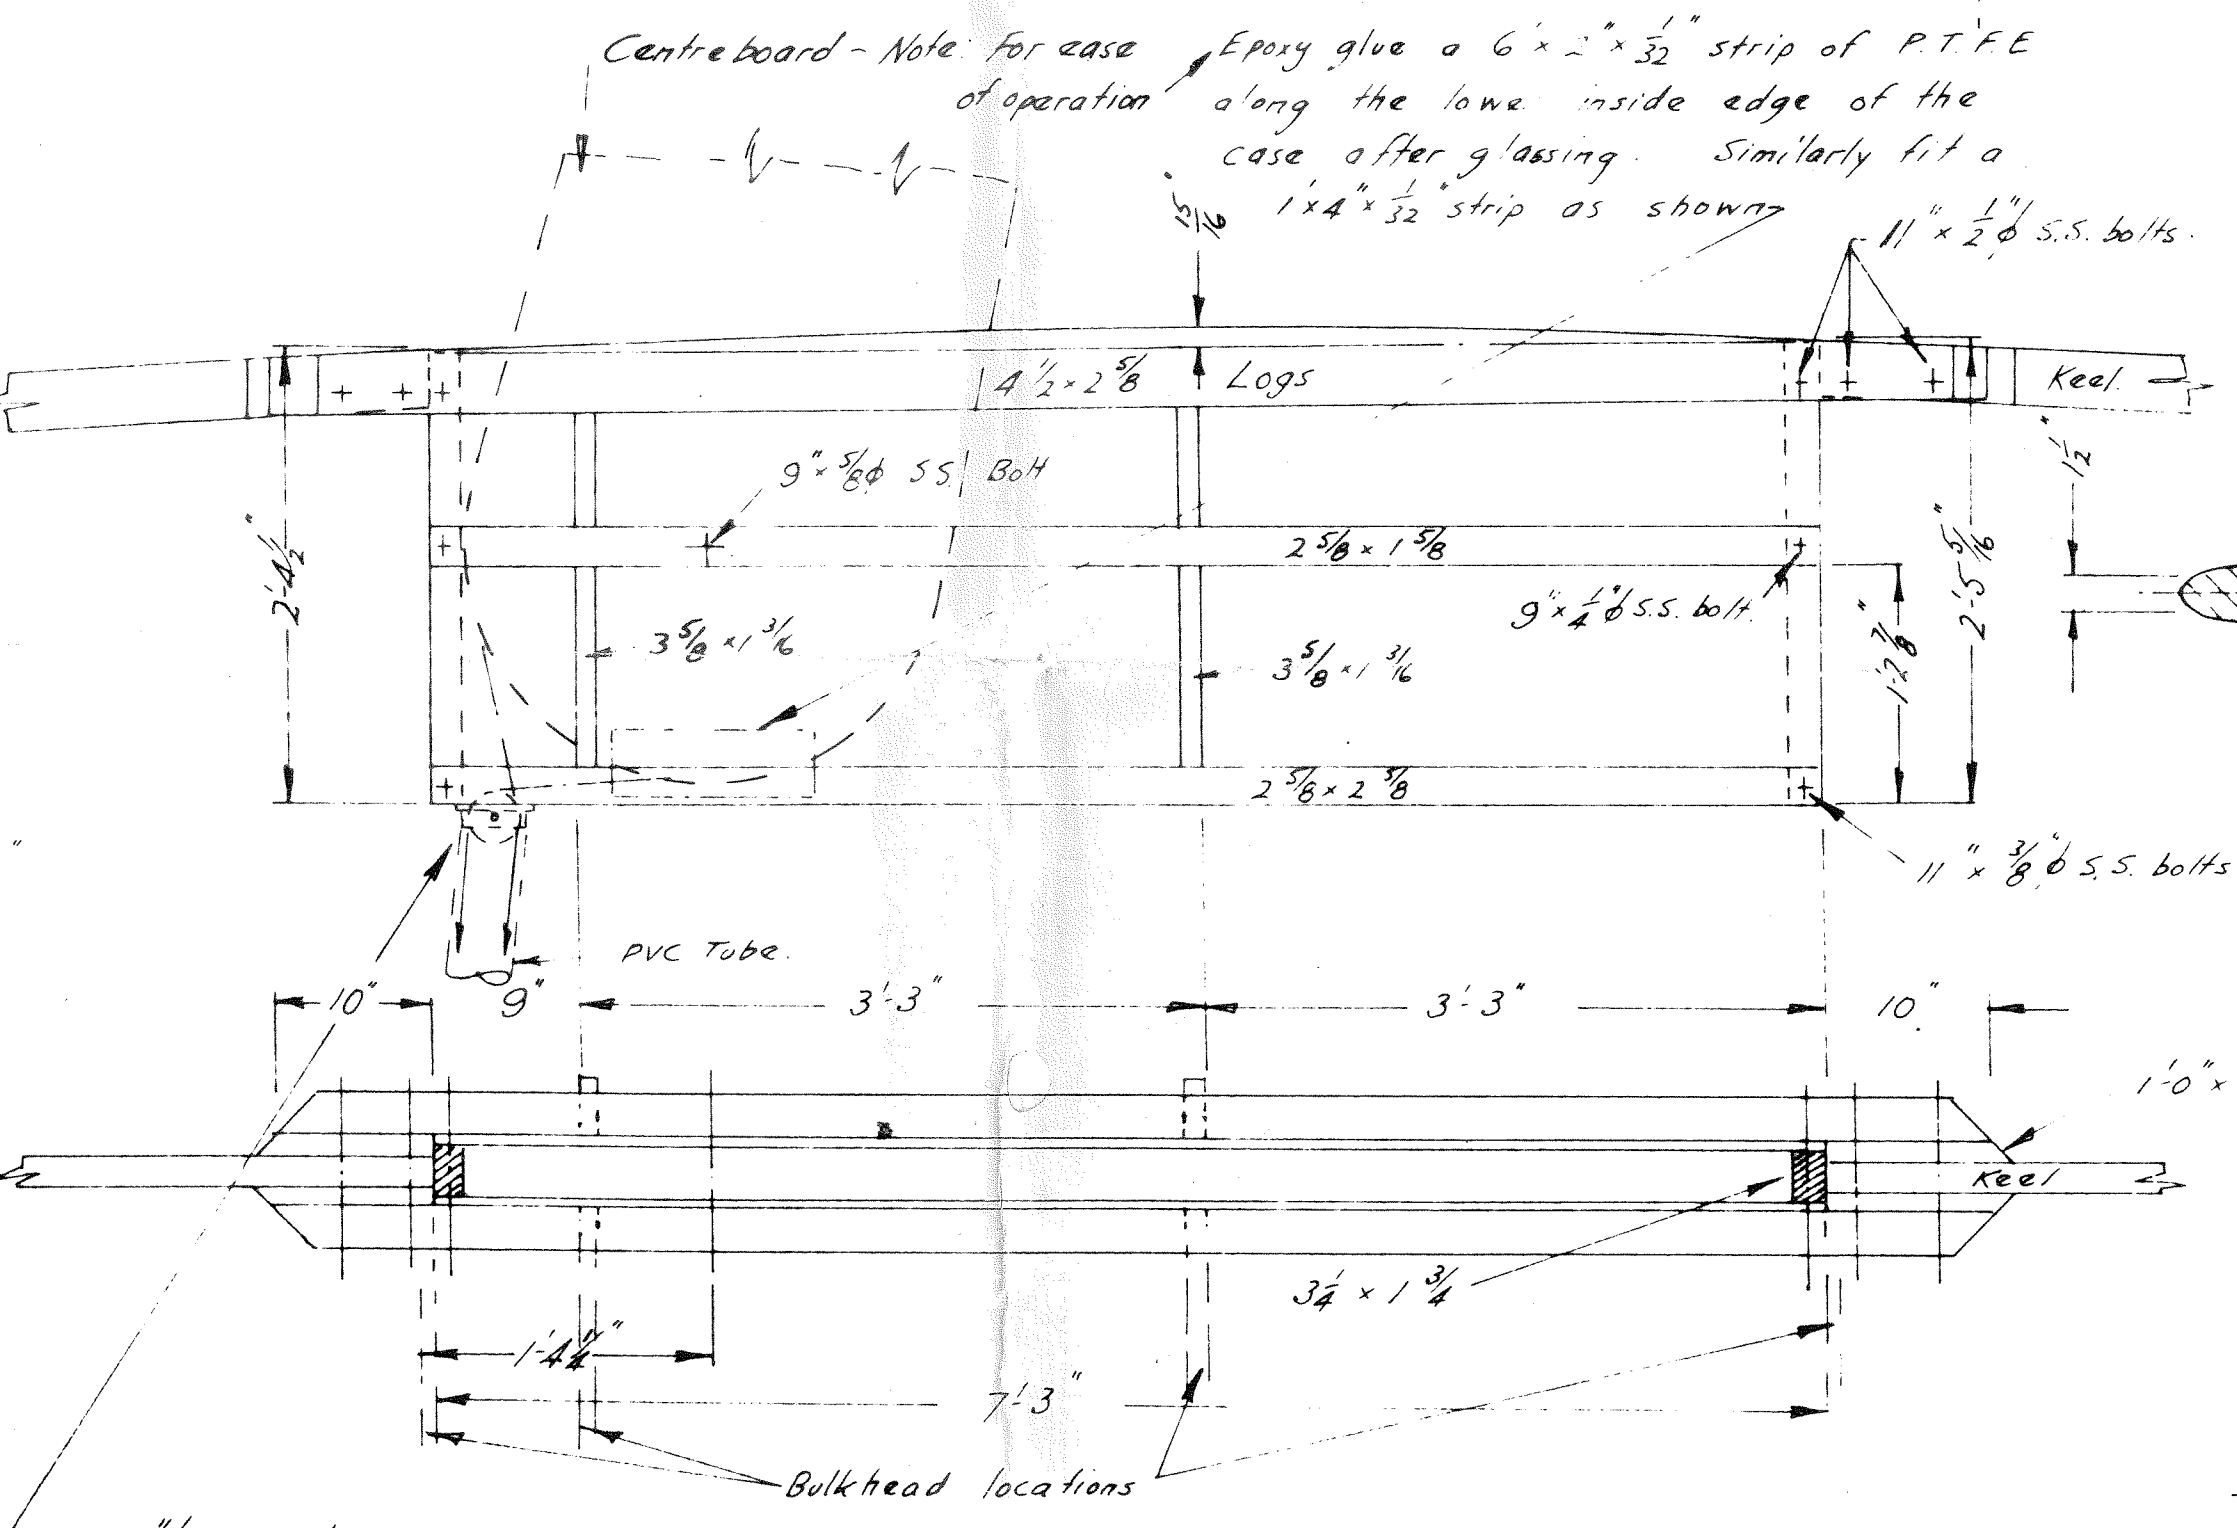 Centreboard - Note: For ease
of operation
Epoxy glue a 6' × 2" × 1/32" strip of P.T.F.E
along the lowe inside edge of the
case after glassing. Similarly fit a
1' × 4" × 1/32" strip as shown
15/16"
11" × 1/2" φ S.S. bolts.
4 1/2 × 2 5/8 Logs
Keel.
9" × 5/8 φ S.S. Bolt
1 1/2"
2'-4 1/2"
2 5/8 × 1 5/8
2'-5 5/16"
9" × 1/4" φ S.S. bolt.
3 5/8 × 1 3/16
3 5/8 × 1 3/16
1'-2 7/8"
2 5/8 × 2 5/8
11" × 3/8" φ S.S. bolts
PVC Tube.
10"
9"
3'-3"
3'-3"
10"
1'-0" ×
Keel
3 1/4 × 1 3/4
1'-4 1/4"
7'-3"
Bulkhead locations